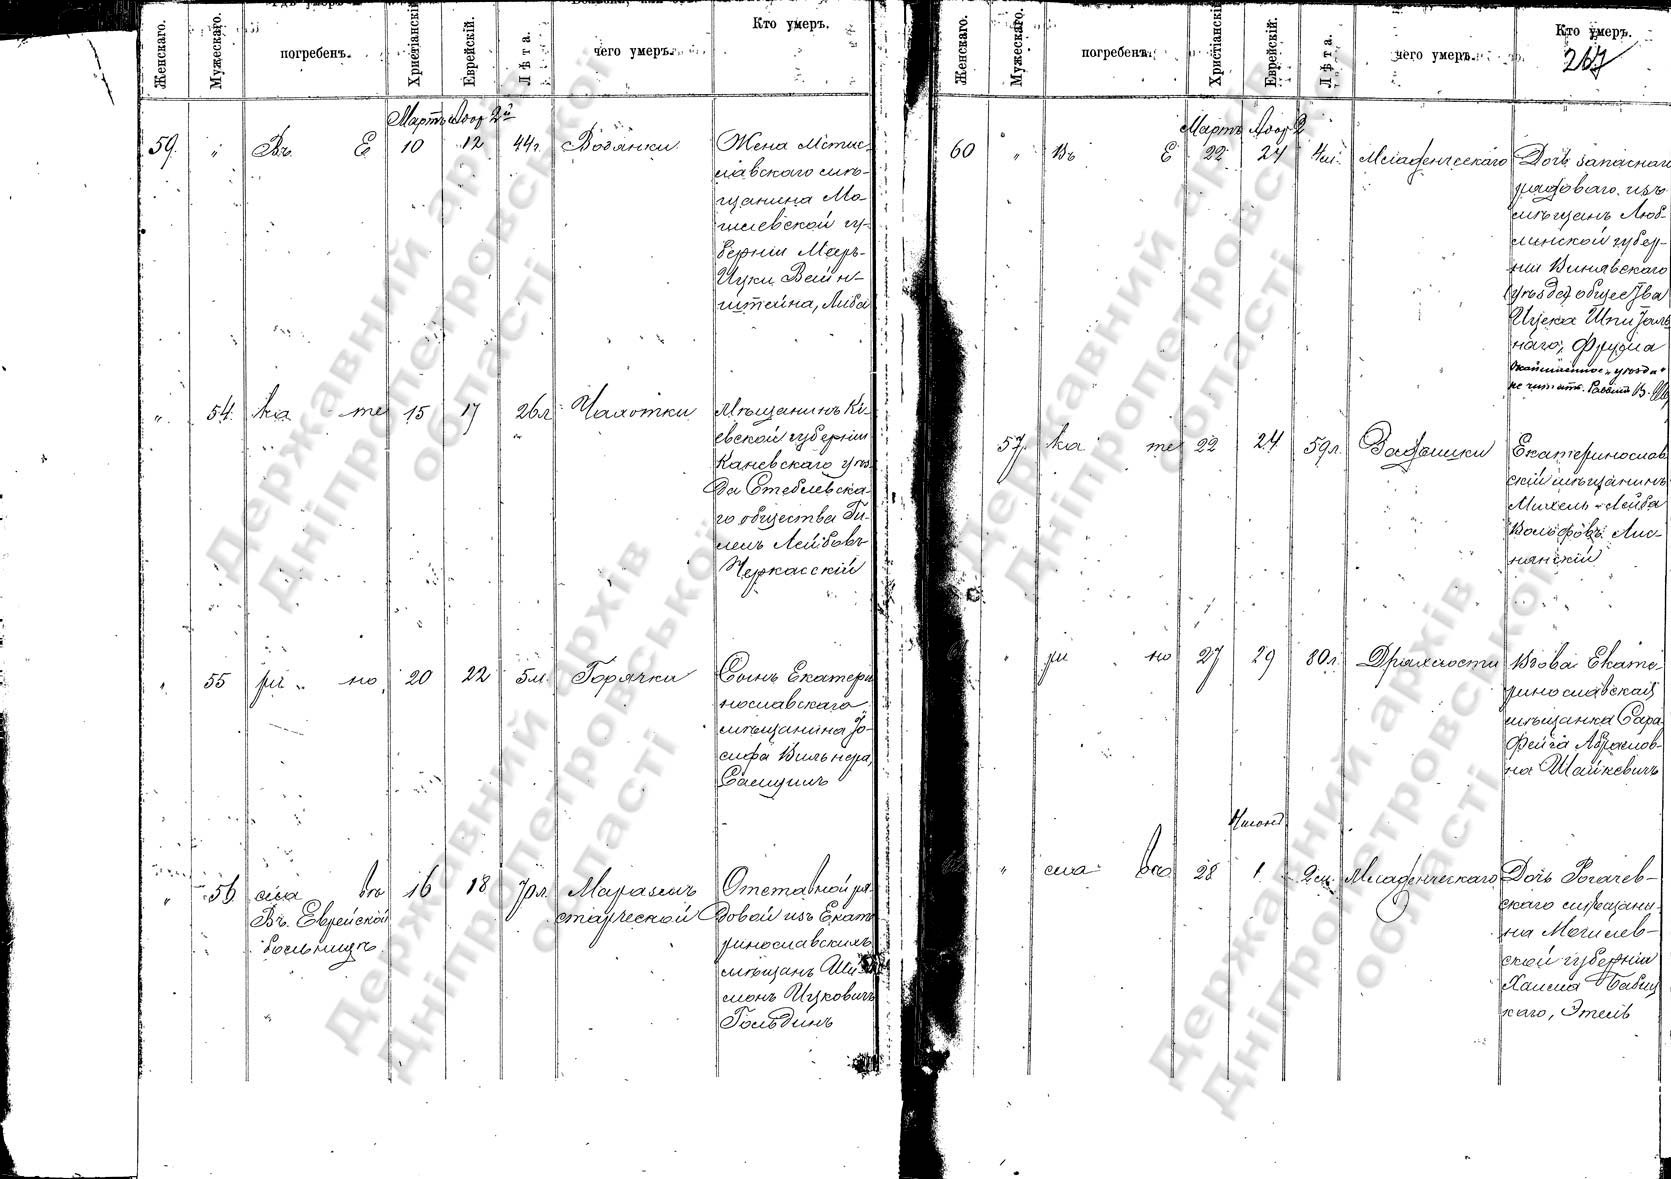 Женскаго.
Мужескаго.
погребенъ.
Христіанскій
Еврейскій.
Лѣта.
чего умеръ.
Кто умеръ.
Мартъ Адор 2й
59. " Въ Е 10 12 44г. Водянки
Жена Мстис-
лавскаго мѣ-
щанина Мо-
гилевской гу-
берніи Меръ-
Ицки Вейн-
штейна, Либа
" 54. ка те 15 17 26л Чахотки
Мѣщанинъ Кі-
евской губерніи
Каневскаго уѣз-
да Стеблевска-
го общества Ги-
лель Лейбовъ
Черкасскій
" 55 ри но 20 22 5м. Горячки
Сынъ Екатери
нославскаго
мѣщанина Іо-
сифа Вильнера,
Самуилъ
" 56. сла вѣ 16 18 70л. Маразмъ
старческой
Въ Еврейской
больницѣ
Отставной ря-
довой изъ Екате
ринославскихъ
мѣщанъ Ши
монъ Ицковичъ
Гольдинъ
Женскаго.
Мужескаго.
погребенъ.
Христіанскій
Еврейскій.
Лѣта.
чего умеръ.
Кто умеръ.
267
Мартъ Адор 2
60 " Въ Е 22 24 4м. Младенческаго
Дочь запаснаго
рядоваго изъ
мѣщанъ Люб-
линской губер-
ніи
(уѣзда) общества
Ицека
наго, Фрума
уѣзда"
не читать. Раввинъ
57. ка те 22 24 59л.
Екатеринослав
скій мѣщанинъ
Михель-Лейба
Вольфовъ Лис-
нянскій
61 " ри но 27 29 80л. Дряхлости
Вдова Екате-
ринославская
мѣщанка Сара
Фейга Абрамов-
на Шайкевичъ
Нисонъ
62 " сла вѣ 28 1 2м. Младенческаго
Дочь Рогачев-
скаго мѣщани-
на Могилев-
ской губерніи
Хаима Бабиц
каго, Этель
Державний архів
Дніпропетровської
області